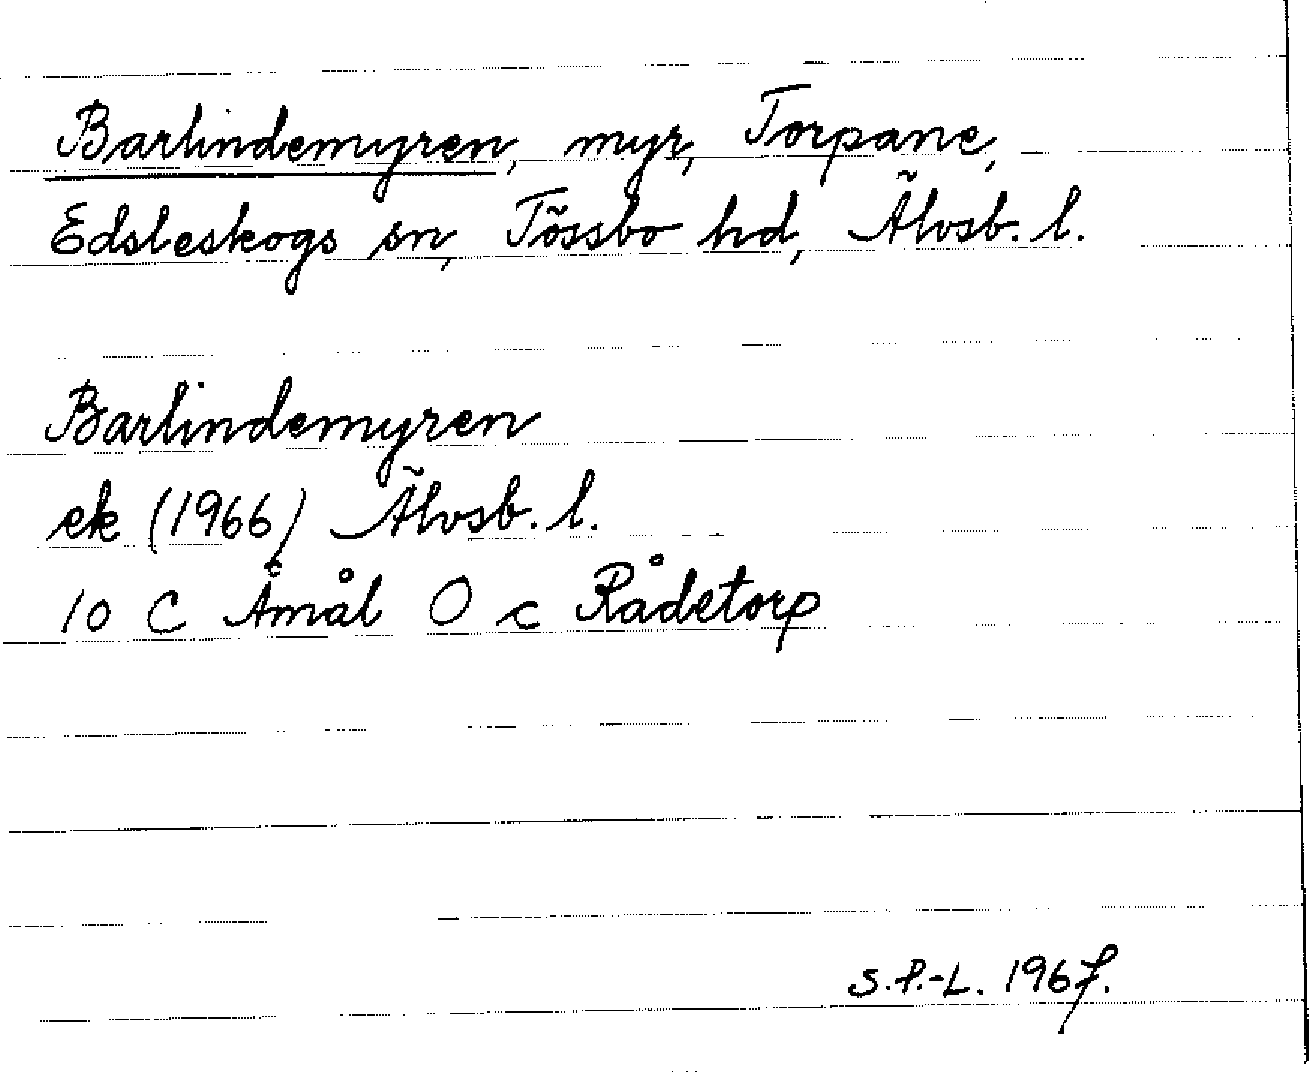 Barlindemyren, myr, Torpane,
Edsleskogs sn, Tössbo hd, Älvsb. l.
Barlindemyren
ek (1966) Älvsb. l.
10 C Åmål O c Rådetorp
S.P.-L. 1967.